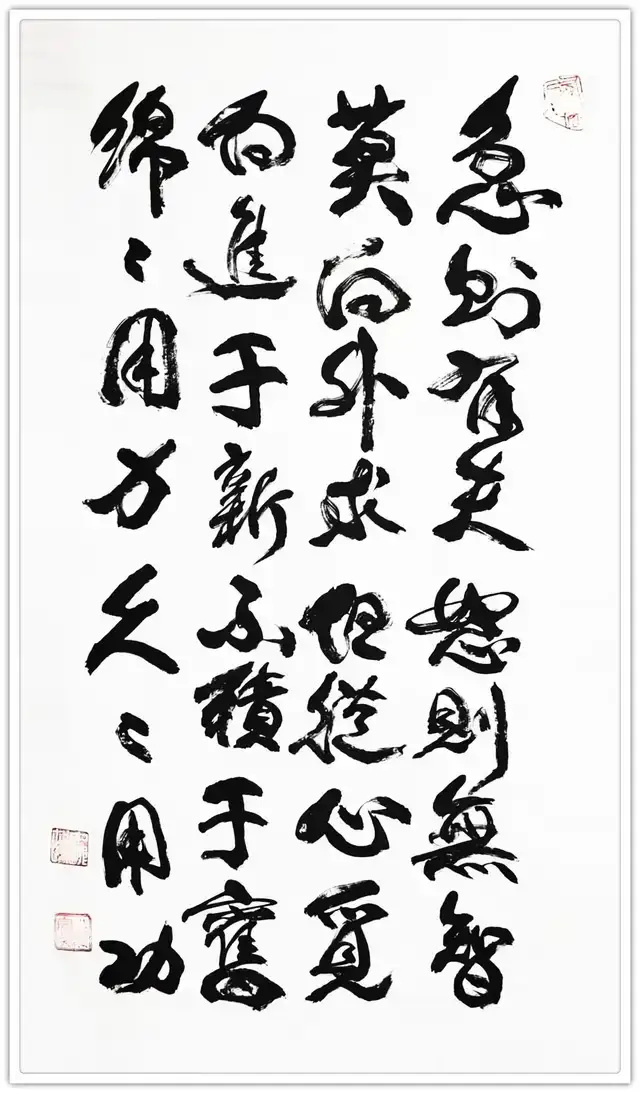 急則有失怒則無智
莫向外求但從心覓
向進于新不積于舊
綿〻用力久〻用功